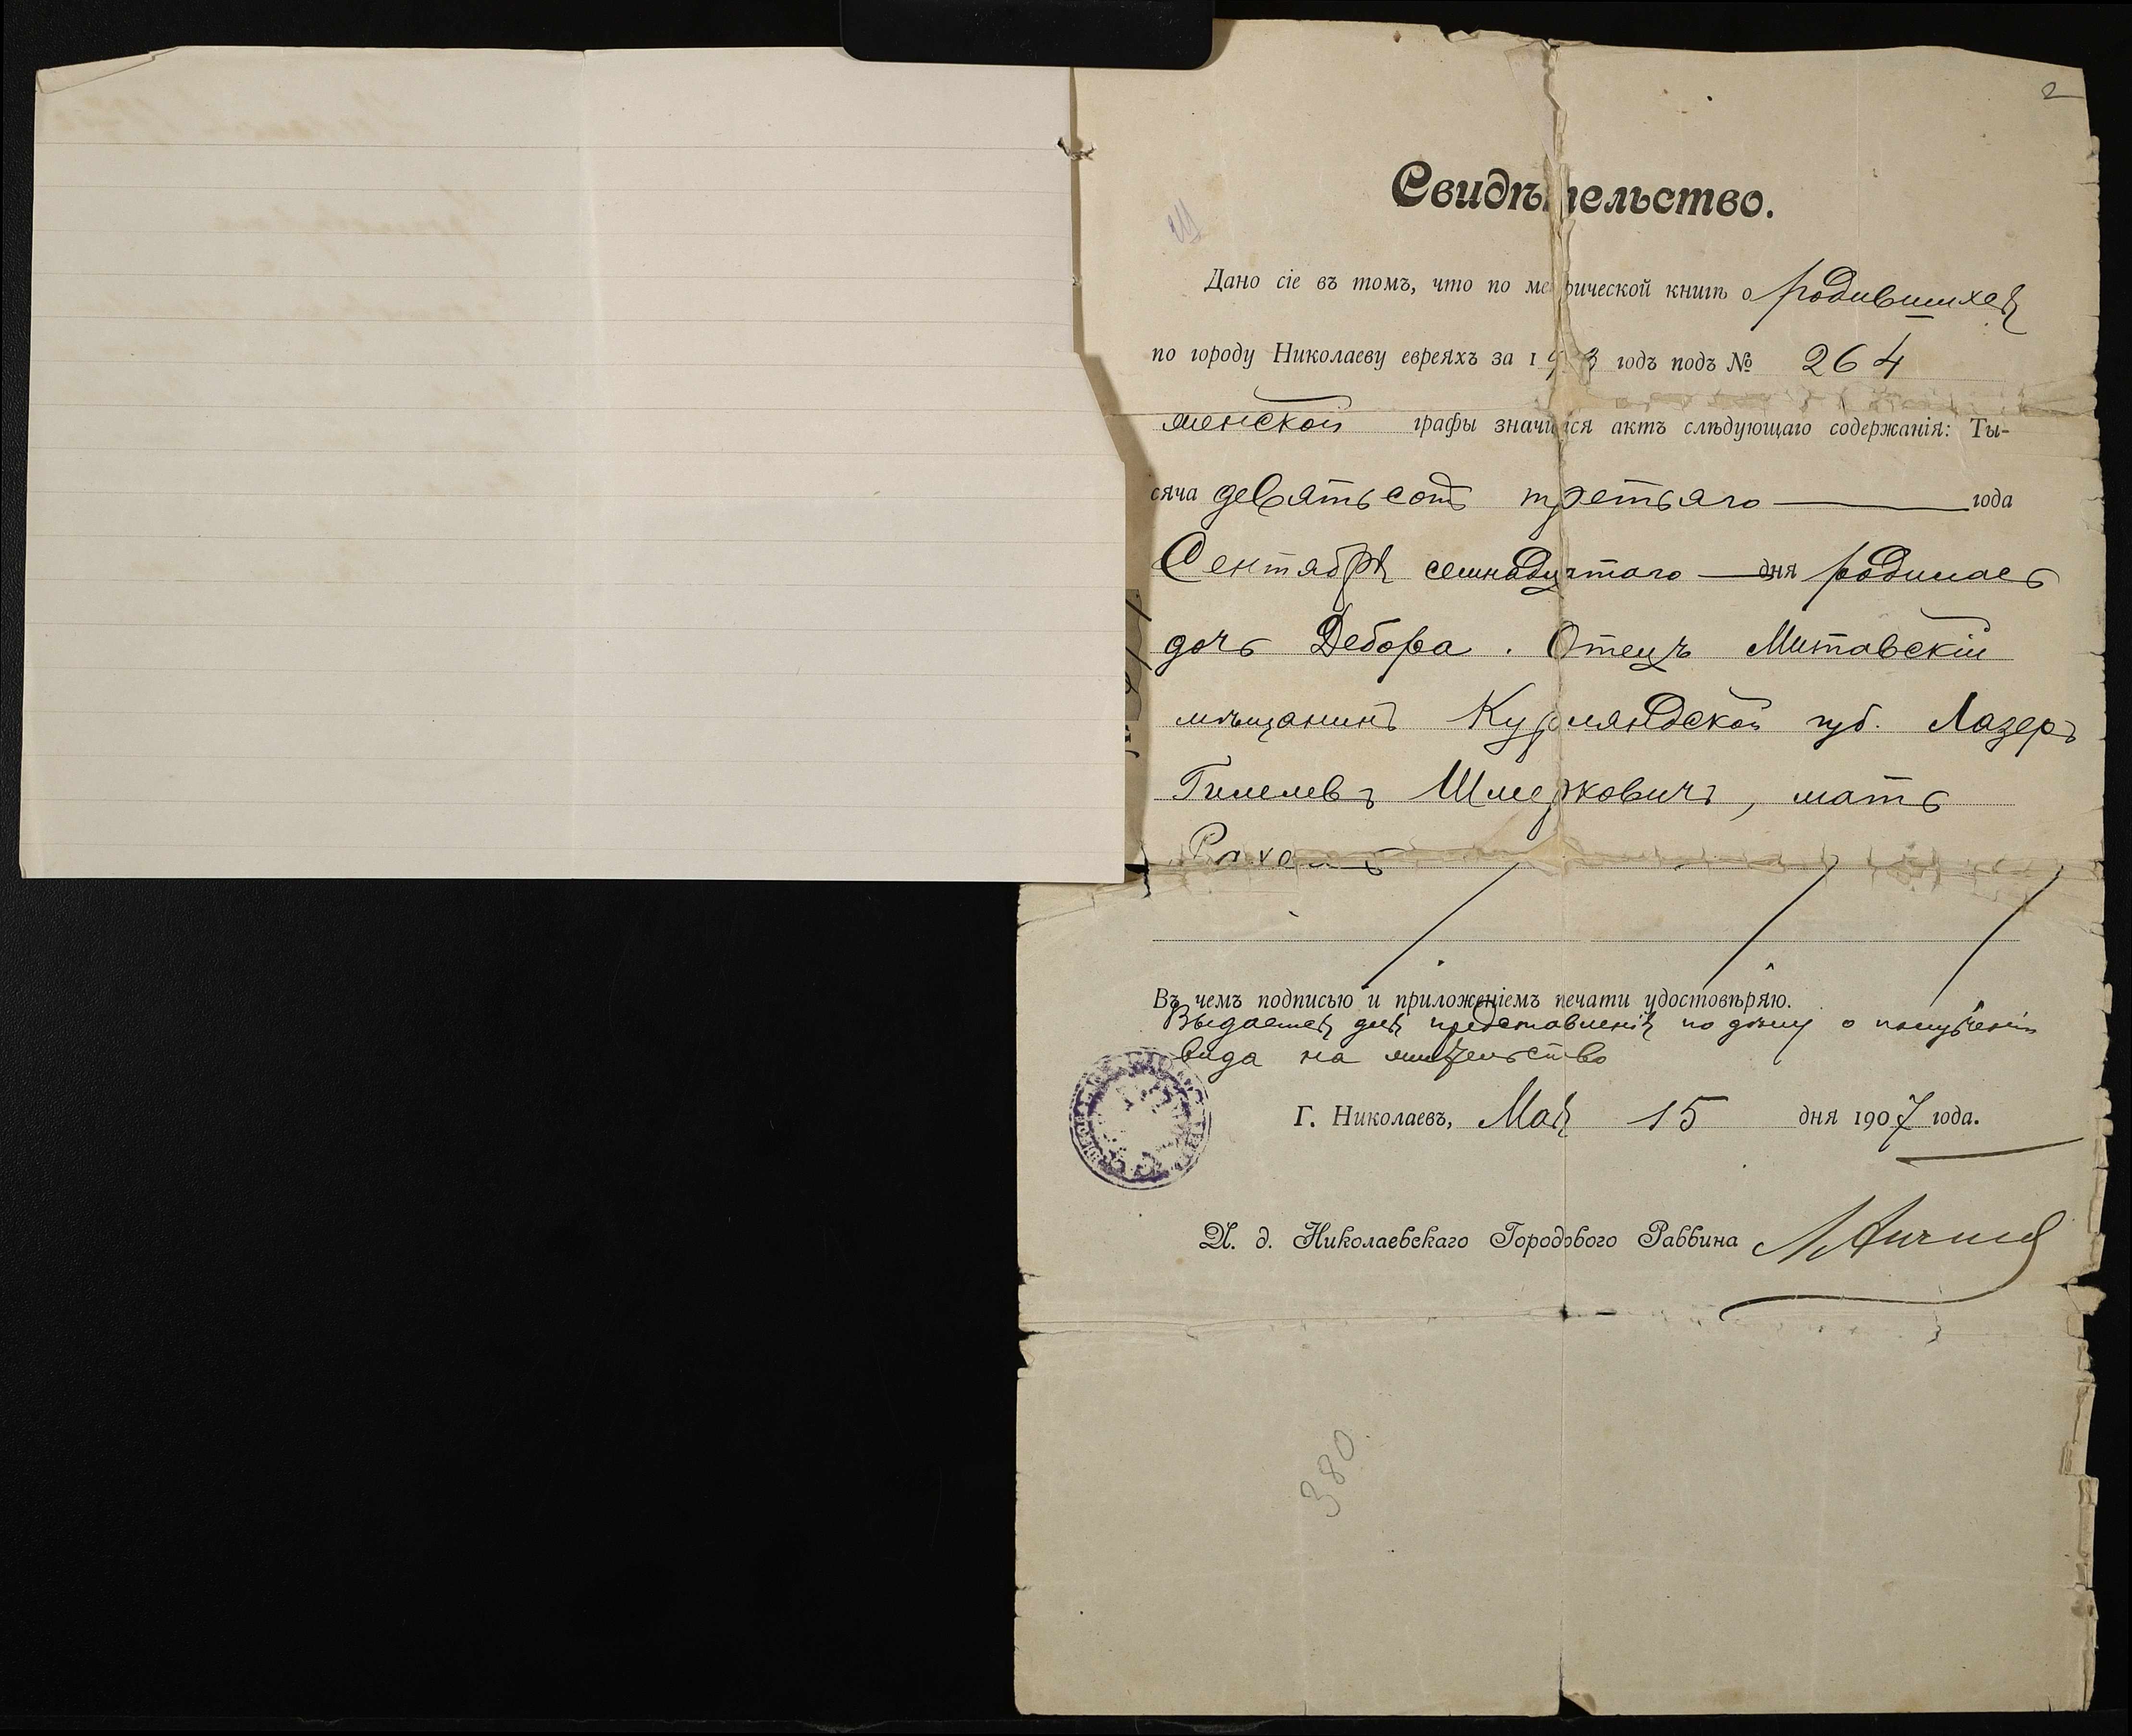 2
Свидѣтельство.
Дано сіе въ томъ, что по метрической книгѣ о родившихся
по городу Николаеву евреяхъ за 1903 годъ подъ № 264
женской графы значится актъ слѣдующаго содержанія: Ты-
сяча девятьсотъ третьяго года
Сентября семнадцатаго дня родилась
дочь Дебора. Отецъ Митавскій
мѣщанинъ Курляндской губ. Лазеръ
Гилелевъ Шмерковичъ, мать
Рахель
Въ чемъ подписью и приложеніемъ печати удостовѣряю.
Выдается для представленія по дѣлу о полученіи
вида на жительство
Г. Николаевъ, Мая 15 дня 1907 года.
И. д. Николаевскаго Городового Раввина
380